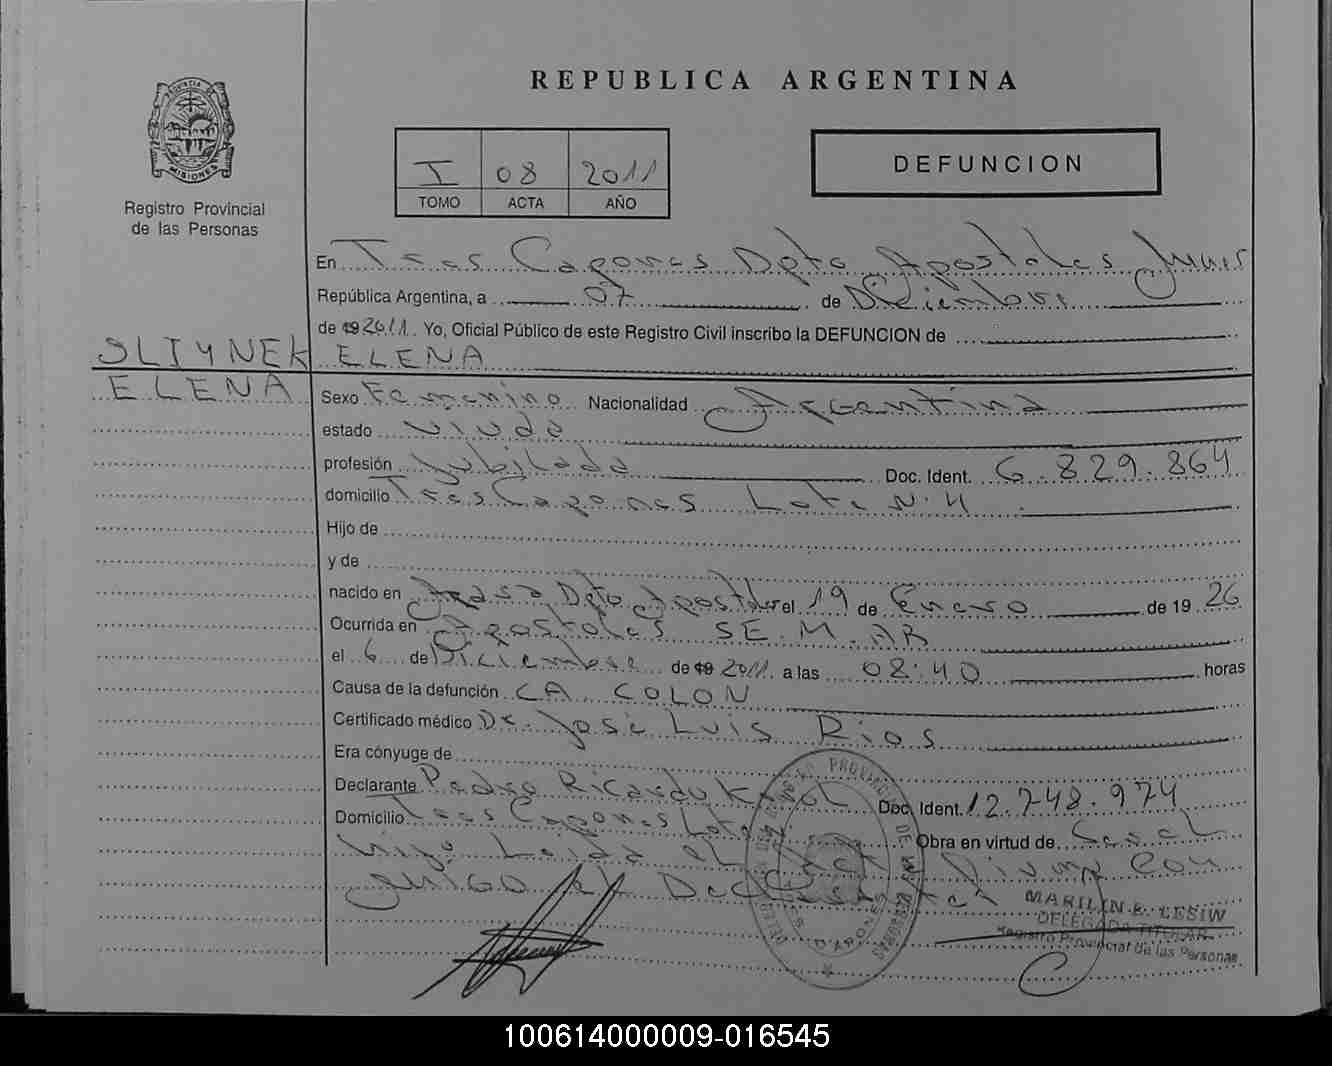 REPUBLICA ARGENTINA
PROVINCIA DE MISIONES
Registro Provincial
de las Personas
I 08 2011
TOMO ACTA AÑO
DEFUNCION
En Tres Capones Dpto Apostoles
República Argentina, a 07 de Diciembre
de 19 2011 Yo, Oficial Público de este Registro Civil inscribo la DEFUNCION de
SLIYNEK ELENA
ELENA
Sexo Femenino Nacionalidad Argentina
estado viuda
profesión Jubilada Doc. Ident. 6.829.864
domicilio Tres Capones Lote N: 4
Hijo de
y de
nacido en Dpto Apostoles el 19 de Enero de 19 26
Ocurrida en Apostoles SE.M.AR
el 6 de Diciembre de 19 2011 a las 08:40 horas
Causa de la defunción CA COLON
Certificado médico Dr. José Luis Rios
Era cónyuge de
Declarante Pedro Ricardo Doc. Ident. 12.748.974
Domicilio Tres Capones Lote Obra en virtud de
Leida el firma con
migo el Declarante
MARILIN E. LESIW
DELEGADA TITULAR
Registro Provincial de las Personas
100614000009-016545